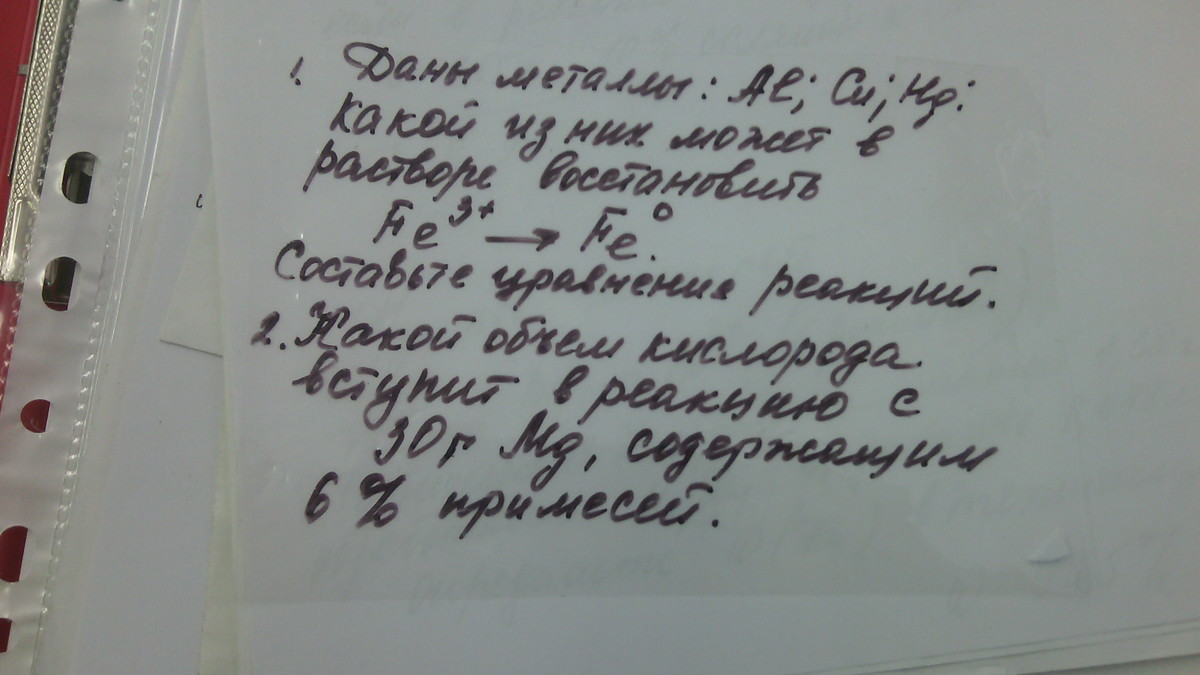 1. Даны металлы: Al; Cu; Hg:
какой из них может в
растворе восстановить
Fe³⁺ → Fe⁰.
Составьте уравнения реакций.
2. Какой объем кислорода
вступит в реакцию с
30г Mg, содержащим
6 % примесей.